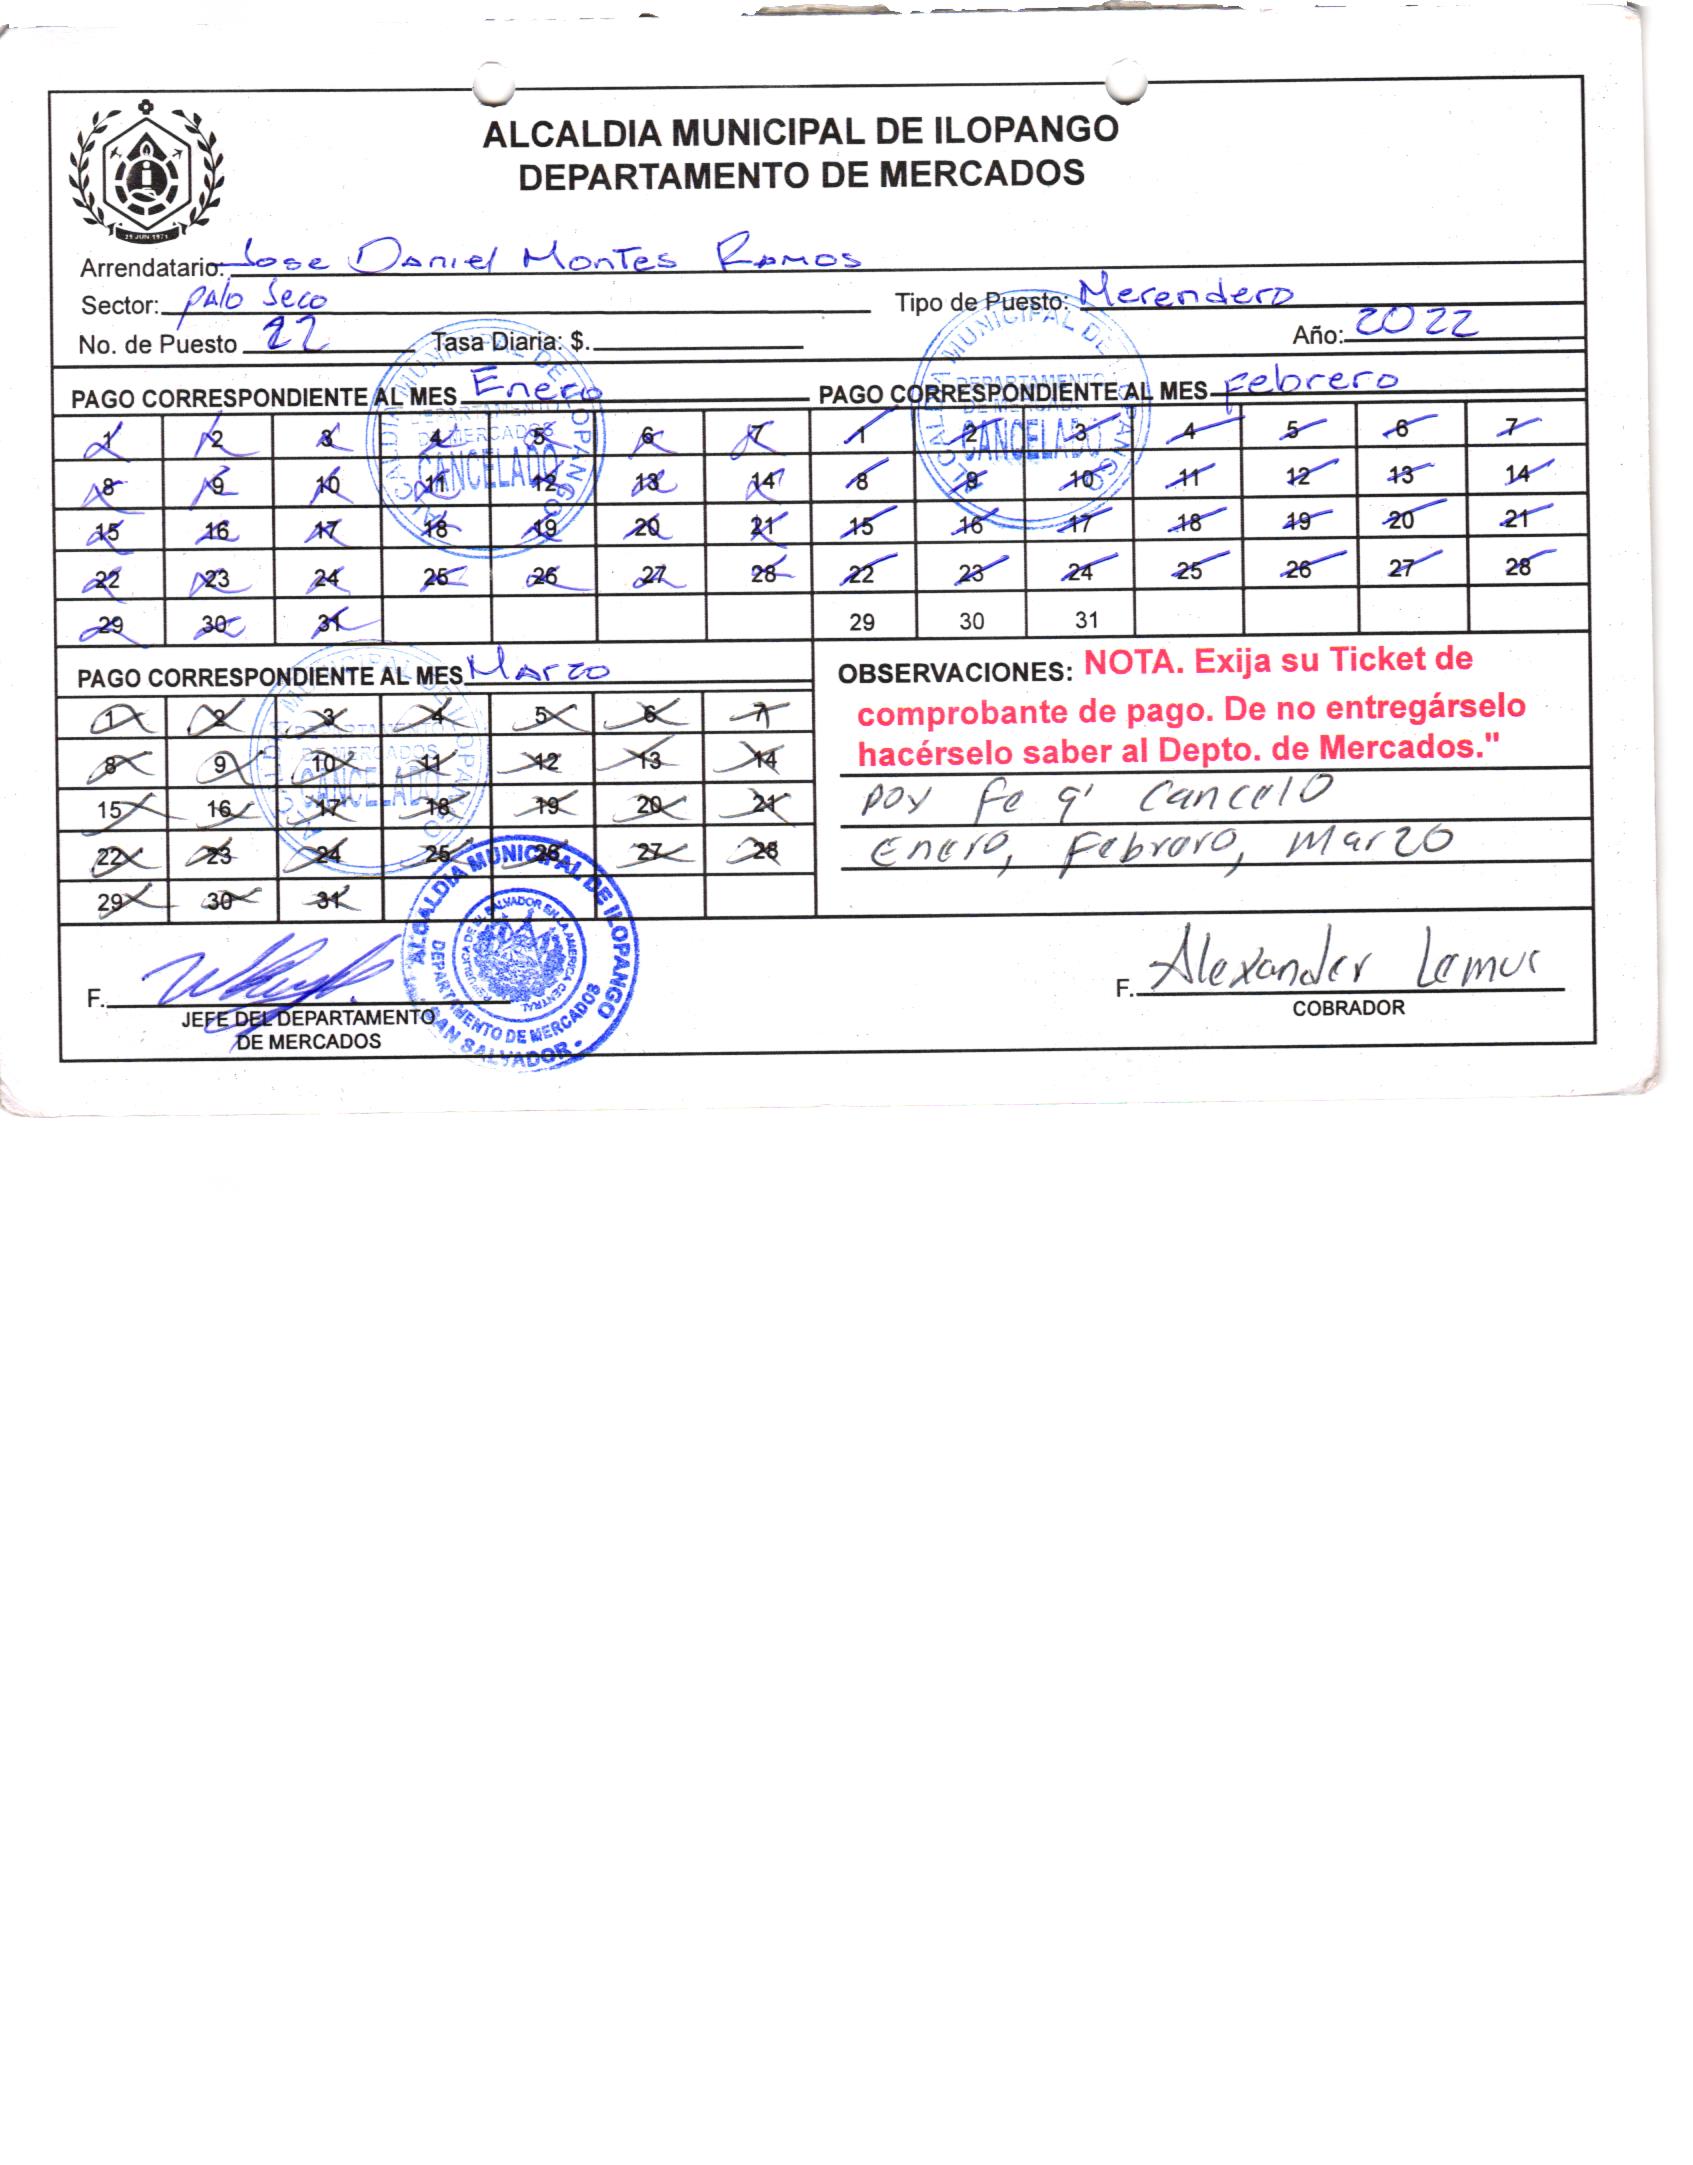 ALCALDIA MUNICIPAL DE ILOPANGO
DEPARTAMENTO DE MERCADOS
25 JUN 1971
Arrendatario: Jose Daniel Montes Ramos
Sector: Palo Seco Tipo de Puesto: Merendero
No. de Puesto 22 Tasa Diaria: $. Año: 2022
PAGO CORRESPONDIENTE AL MES Enero
1 2 3 4 5 6 7
8 9 10 11 12 13 14
15 16 17 18 19 20 21
22 23 24 25 26 27 28
29 30 31
ALCALDIA MUNICIPAL DE ILOPANGO
DEPARTAMENTO
DE MERCADOS
CANCELADO
PAGO CORRESPONDIENTE AL MES Febrero
1 2 3 4 5 6 7
8 9 10 11 12 13 14
15 16 17 18 19 20 21
22 23 24 25 26 27 28
29 30 31
ALCALDIA MUNICIPAL DE ILOPANGO
DEPARTAMENTO
DE MERCADOS
CANCELADO
PAGO CORRESPONDIENTE AL MES Marzo
1 2 3 4 5 6 7
8 9 10 11 12 13 14
15 16 17 18 19 20 21
22 23 24 25 26 27 28
29 30 31
ALCALDIA MUNICIPAL DE ILOPANGO
DEPARTAMENTO
DE MERCADOS
CANCELADO
OBSERVACIONES: NOTA. Exija su Ticket de
comprobante de pago. De no entregárselo
hacérselo saber al Depto. de Mercados."
Doy fe q' Cancelo
Enero, Febrero, Marzo
F.
JEFE DEL DEPARTAMENTO
DE MERCADOS
ALCALDIA MUNICIPAL DE ILOPANGO
DEPARTAMENTO DE MERCADOS
REPUBLICA DE EL SALVADOR EN LA AMERICA CENTRAL
SAN SALVADOR
F. Alexander Lemus
COBRADOR